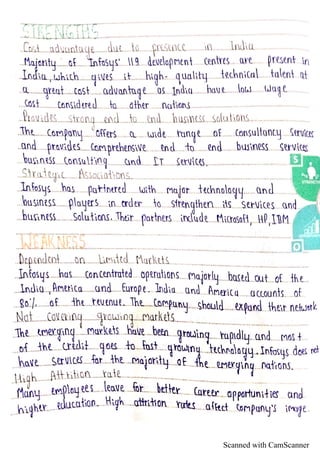 STRENGTHS
Cost advantage due to presence in India
Majority of Infosys' 119 development centres are present in
India, which gives it high-quality technical talent at
a great cost advantage as India have low wage
cost considered to other nations
Provides strong end to end business solutions.
The company offers a wide range of consultancy services
and provides comprehensive end to end business services
business consulting and IT services.
S
STRENGTH
Strategic Associations.
Infosys has partnered with major technology and
business players in order to strengthen its services and
business solutions. Their partners include Microsoft, HP, IBM
WEAKNESS
O
Dependent on Limited Markets
Infosys has concentrated operations majorly based out of the
India, America and Europe. India and America accounts of
80% of the revenue. The Company should expand their network
Not Covering growing markets
The emerging markets have been growing rapidly and most
of the credit goes to fast growing technology. Infosys does not
have services for the majority of the emerging nations.
High Attrition rate
Many employees leave for better career opportunities and
higher education. High attrition rates affect company's image
Scanned with CamScanner